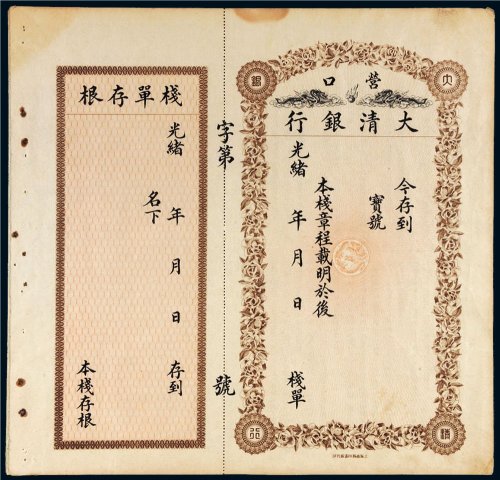 營口
大清銀行
今存到
寶號
本棧章程載明於後
光緒 年 月 日
棧單
大
清
銀
行
字第 號
棧單存根
光緒 年 月 日 存到
名下
本棧存根